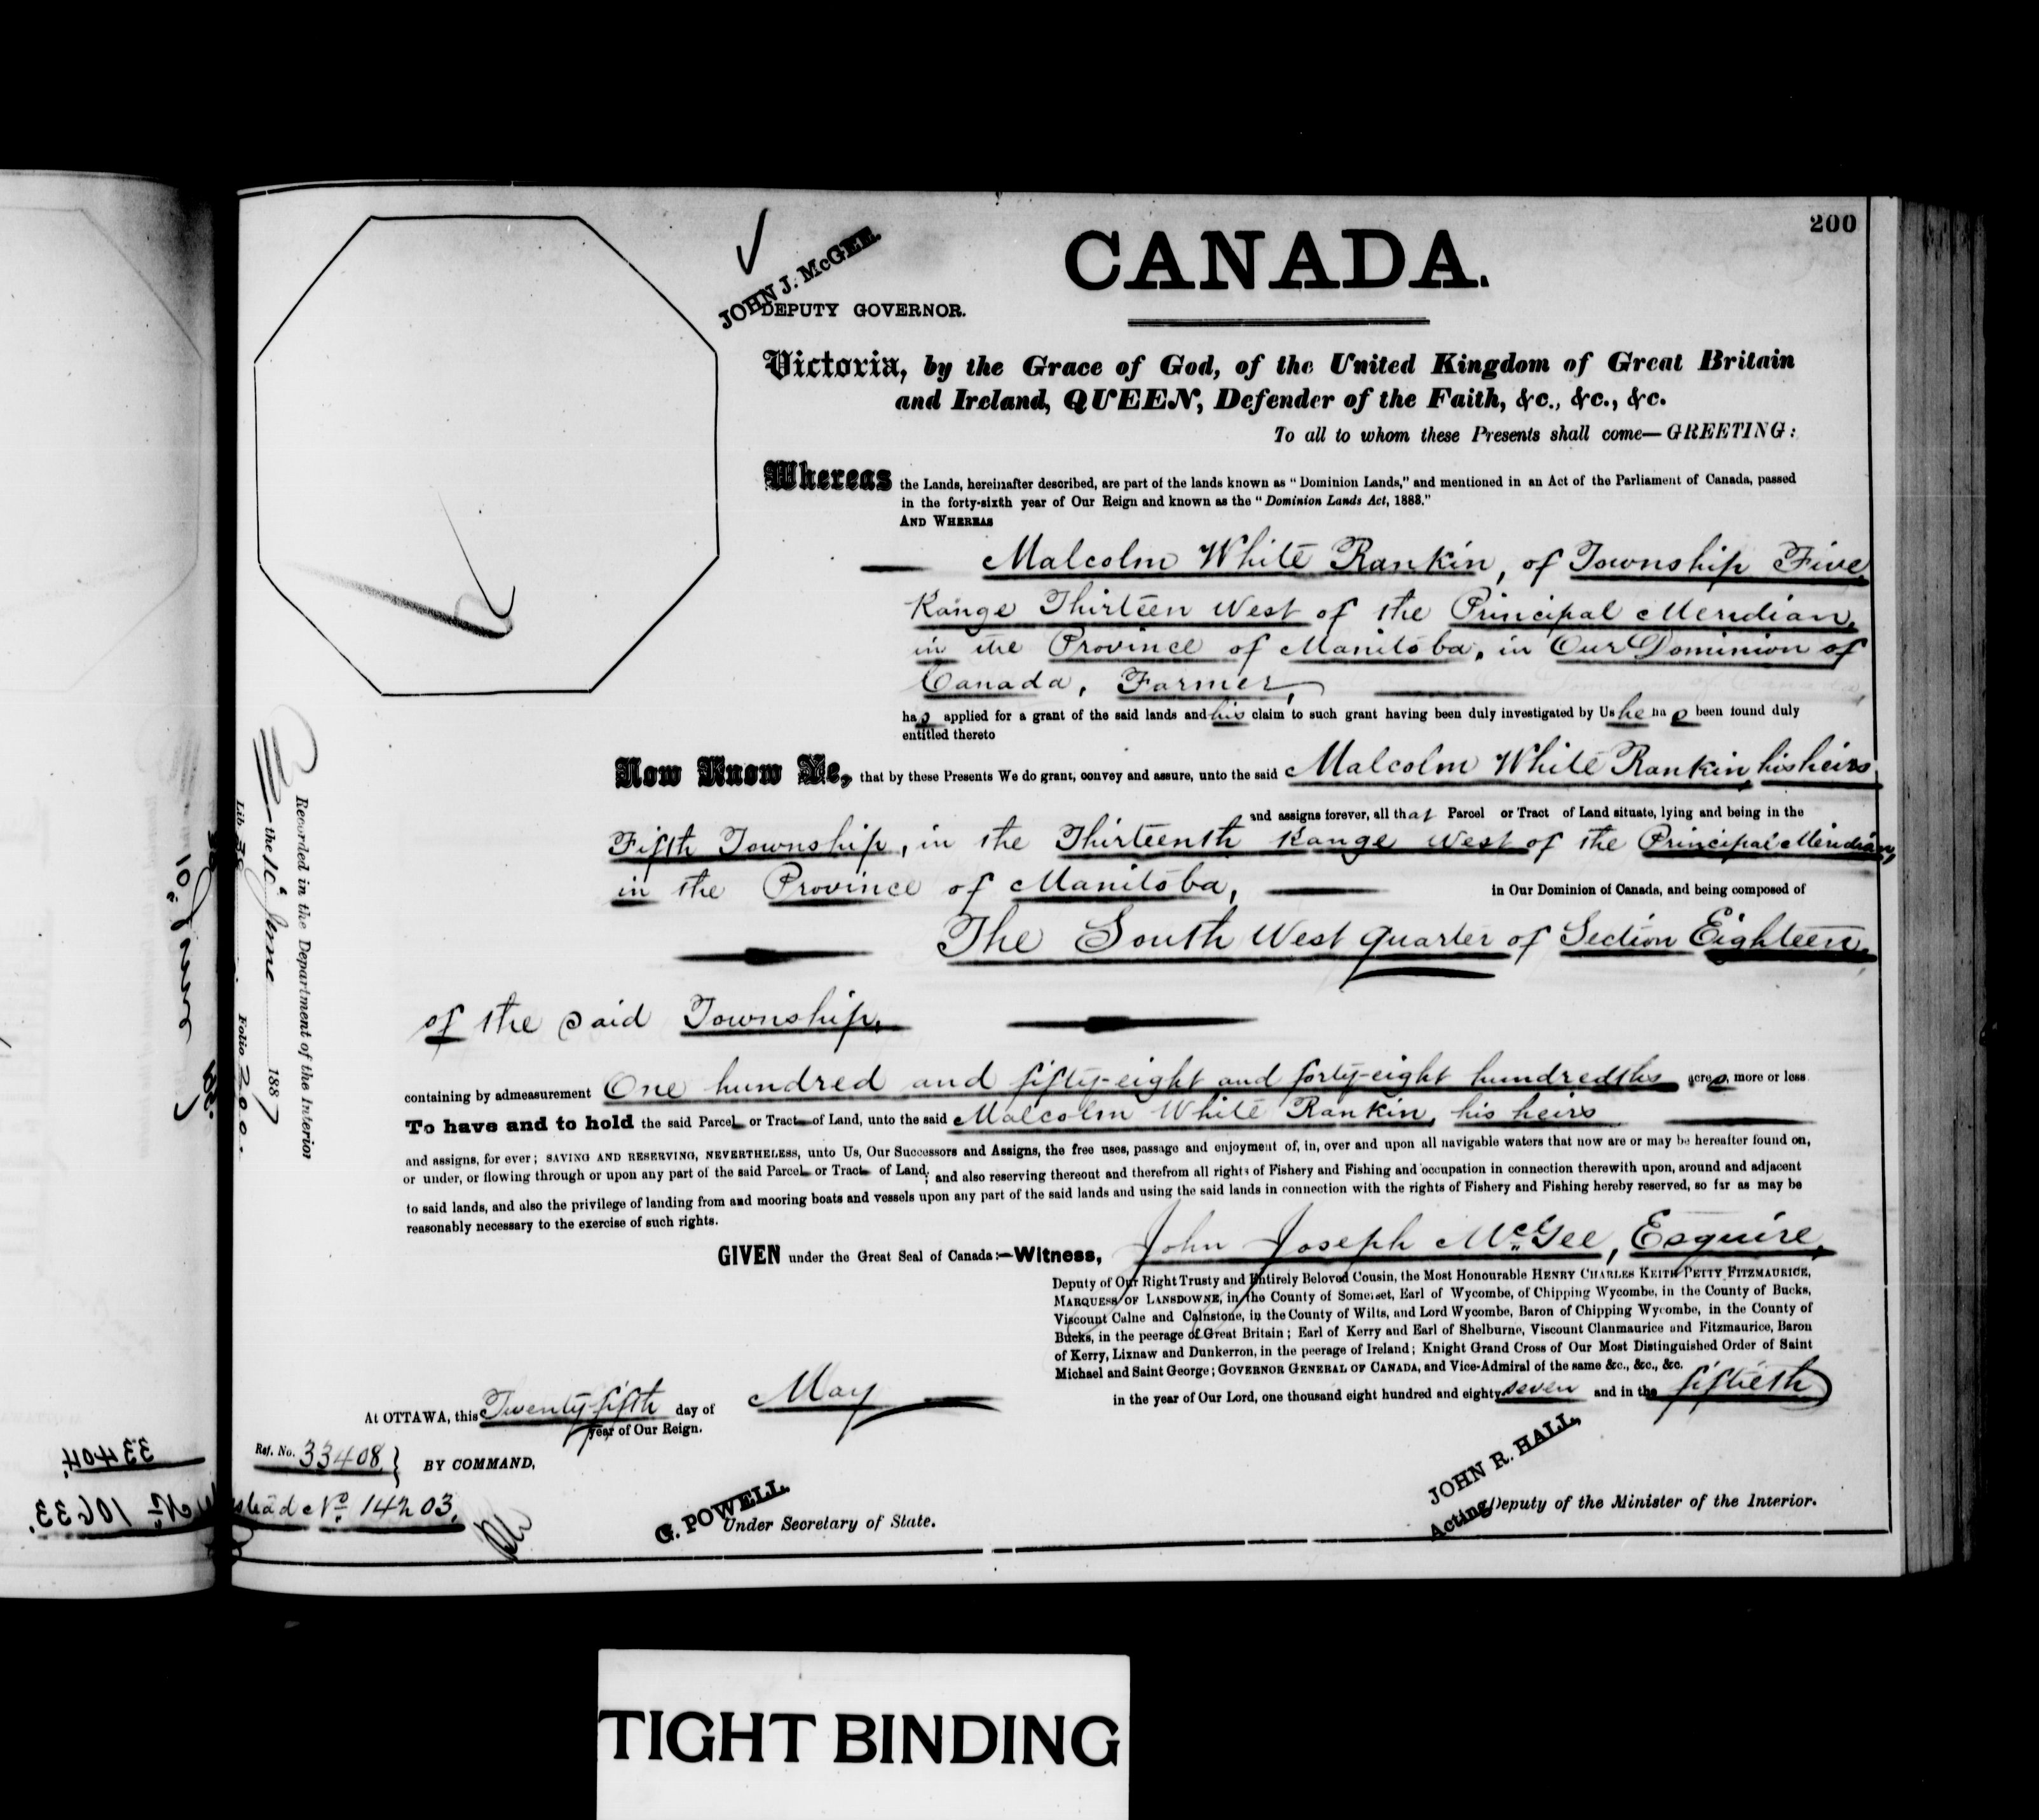 200
CANADA.
JOHN J. McGEE.
DEPUTY GOVERNOR.
Victoria, by the Grace of God, of the United Kingdom of Great Britain
and Ireland, QUEEN, Defender of the Faith, &c., &c., &c.
To all to whom these Presents shall come—GREETING:
Whereas the Lands, hereinafter described, are part of the lands known as "Dominion Lands," and mentioned in an Act of the Parliament of Canada, passed
in the forty-sixth year of Our Reign and known as the "Dominion Lands Act, 1883."
AND WHEREAS
Malcolm White Rankin, of Township Five,
Range Thirteen West of the Principal Meridian,
in the Province of Manitoba, in Our Dominion of
Canada, Farmer,
has applied for a grant of the said lands and his claim to such grant having been duly investigated by Us he has been found duly
entitled thereto
Now Know Ye, that by these Presents We do grant, convey and assure, unto the said Malcolm White Rankin, his heirs
and assigns forever, all that Parcel or Tract of Land situate, lying and being in the
Fifth Township, in the Thirteenth Range West of the Principal Meridian,
in the Province of Manitoba, in Our Dominion of Canada, and being composed of
The South West quarter of Section Eighteen,
of the said Township.
containing by admeasurement One hundred and fifty-eight and forty-eight hundredths acres, more or less
To have and to hold the said Parcel or Tract of Land, unto the said Malcolm White Rankin, his heirs
and assigns, for ever; SAVING AND RESERVING, NEVERTHELESS, unto Us, Our Successors and Assigns, the free uses, passage and enjoyment of, in, over and upon all navigable waters that now are or may be hereafter found on,
or under, or flowing through or upon any part of the said Parcel or Tract of Land; and also reserving thereout and therefrom all rights of Fishery and Fishing and occupation in connection therewith upon, around and adjacent
to said lands, and also the privilege of landing from and mooring boats and vessels upon any part of the said lands and using the said lands in connection with the rights of Fishery and Fishing hereby reserved, so far as may be
reasonably necessary to the exercise of such rights.
GIVEN under the Great Seal of Canada:—Witness, John Joseph McGee, Esquire,
Deputy of Our Right Trusty and Entirely Beloved Cousin, the Most Honourable HENRY CHARLES KEITH PETTY FITZMAURICE,
MARQUESS OF LANSDOWNE, in the County of Somerset, Earl of Wycombe, of Chipping Wycombe, in the County of Bucks,
Viscount Calne and Calnstone, in the County of Wilts, and Lord Wycombe, Baron of Chipping Wycombe, in the County of
Bucks, in the peerage of Great Britain; Earl of Kerry and Earl of Shelburne, Viscount Clanmaurice and Fitzmaurice, Baron
of Kerry, Lixnaw and Dunkerron, in the peerage of Ireland; Knight Grand Cross of Our Most Distinguished Order of Saint
Michael and Saint George; GOVERNOR GENERAL OF CANADA, and Vice-Admiral of the same &c., &c., &c.
At OTTAWA, this Twenty fifth day of May in the year of Our Lord, one thousand eight hundred and eighty seven and in the fiftieth
year of Our Reign.
Ref. No. 33408
BY COMMAND,
stead No 14203.
G. POWELL.
Under Secretary of State.
JOHN R. HALL,
Acting Deputy of the Minister of the Interior.
Recorded in the Department of the Interior
the 10 June 1887
Lib. 36 Folio 200.
33404
No 10633.
TIGHT BINDING